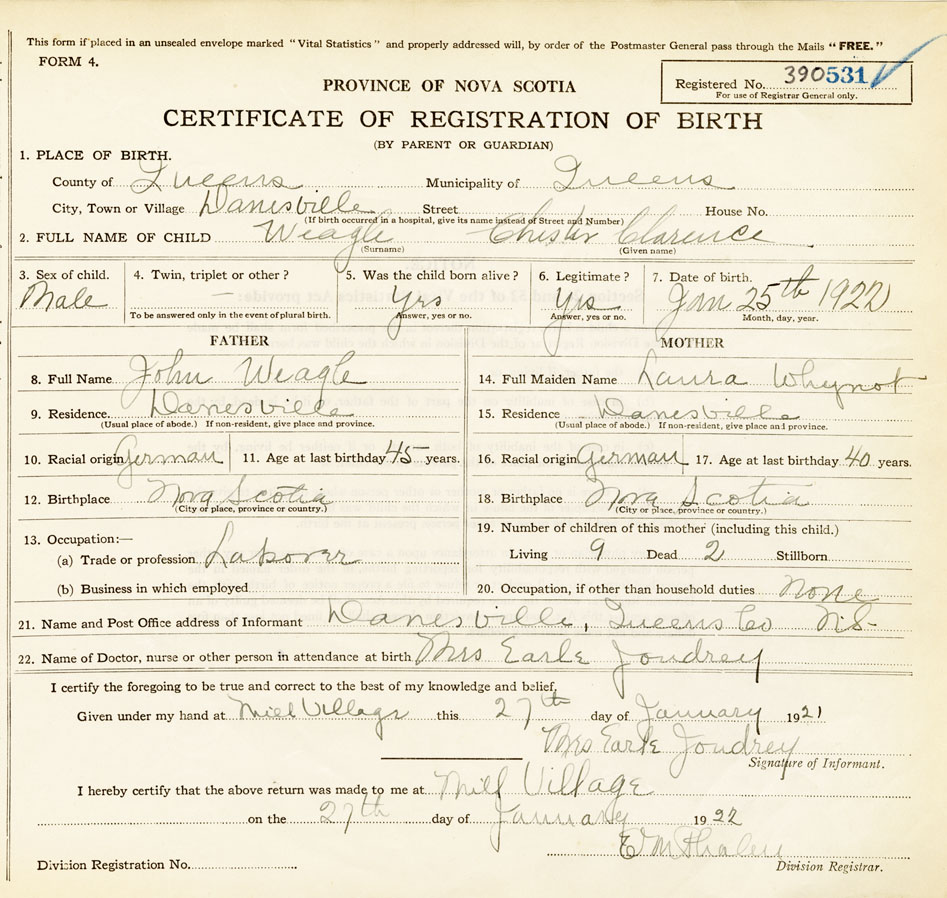 This form if placed in an unsealed envelope marked "Vital Statistics" and properly addressed will, by order of the Postmaster General pass through the Mails "FREE."
FORM 4.
Registered No. 390531
For use of Registrar General only.
PROVINCE OF NOVA SCOTIA
CERTIFICATE OF REGISTRATION OF BIRTH
(BY PARENT OR GUARDIAN)
1. PLACE OF BIRTH.
County of Queens Municipality of Queens
City, Town or Village Danesville Street House No.
(If birth occurred in a hospital, give its name instead of Street and Number)
2. FULL NAME OF CHILD Weagle Chester Clarence
(Surname) (Given name)
3. Sex of child. 4. Twin, triplet or other? 5. Was the child born alive? 6. Legitimate? 7. Date of birth.
Male — Yes Yes Jan 25th 1922
To be answered only in the event of plural birth. Answer, yes or no. Answer, yes or no. Month, day, year.
FATHER MOTHER
8. Full Name John Weagle 14. Full Maiden Name Laura Whynot
9. Residence. Danesville 15. Residence Danesville
(Usual place of abode.) If non-resident, give place and province. (Usual place of abode.) If non-resident, give place and province.
10. Racial origin German 11. Age at last birthday 45 years. 16. Racial origin German 17. Age at last birthday 40 years.
12. Birthplace Nova Scotia 18. Birthplace Nova Scotia
(City or place, province or country.) (City or place, province or country.)
13. Occupation:— 19. Number of children of this mother (including this child.)
(a) Trade or profession Laborer Living 9 Dead 2 Stillborn
(b) Business in which employed 20. Occupation, if other than household duties None
21. Name and Post Office address of Informant Danesville, Queens Co NS-
22. Name of Doctor, nurse or other person in attendance at birth Mrs Earle Joudrey
I certify the foregoing to be true and correct to the best of my knowledge and belief,
Given under my hand at Mill Village this 27th day of January 1921
Mrs Earle Joudrey
Signature of Informant.
I hereby certify that the above return was made to me at Mill Village
on the 27th day of January 1922
E M Phalen
Division Registration No. Division Registrar.